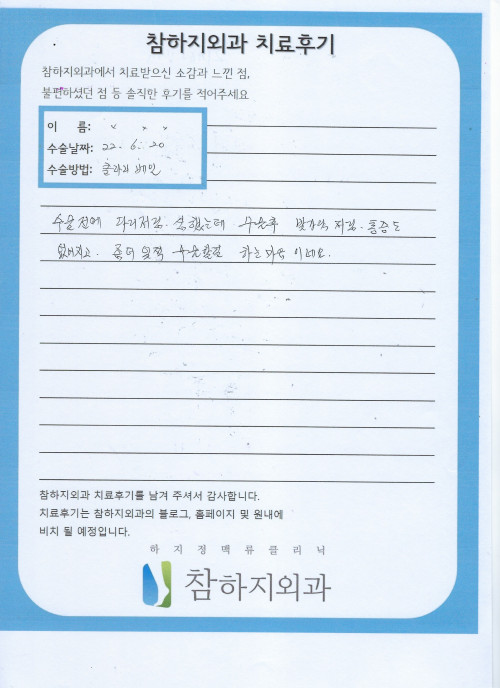 참하지외과 치료후기
참하지외과에서 치료받으신 소감과 느낀 점,
불편하셨던 점 등 솔직한 후기를 적어주세요
이 름: × × ×
수술날짜: 22. 6. 20
수술방법: 클라리베인
수술전에 다리저림. 심했는데 수술후 발가락 저림. 통증도
없어지고. 좀더 일찍 수술할걸 하는 마음 이네요.
참하지외과 치료후기를 남겨 주셔서 감사합니다.
치료후기는 참하지외과의 블로그, 홈페이지 및 원내에
비치 될 예정입니다.
하지정맥류클리닉
참하지외과